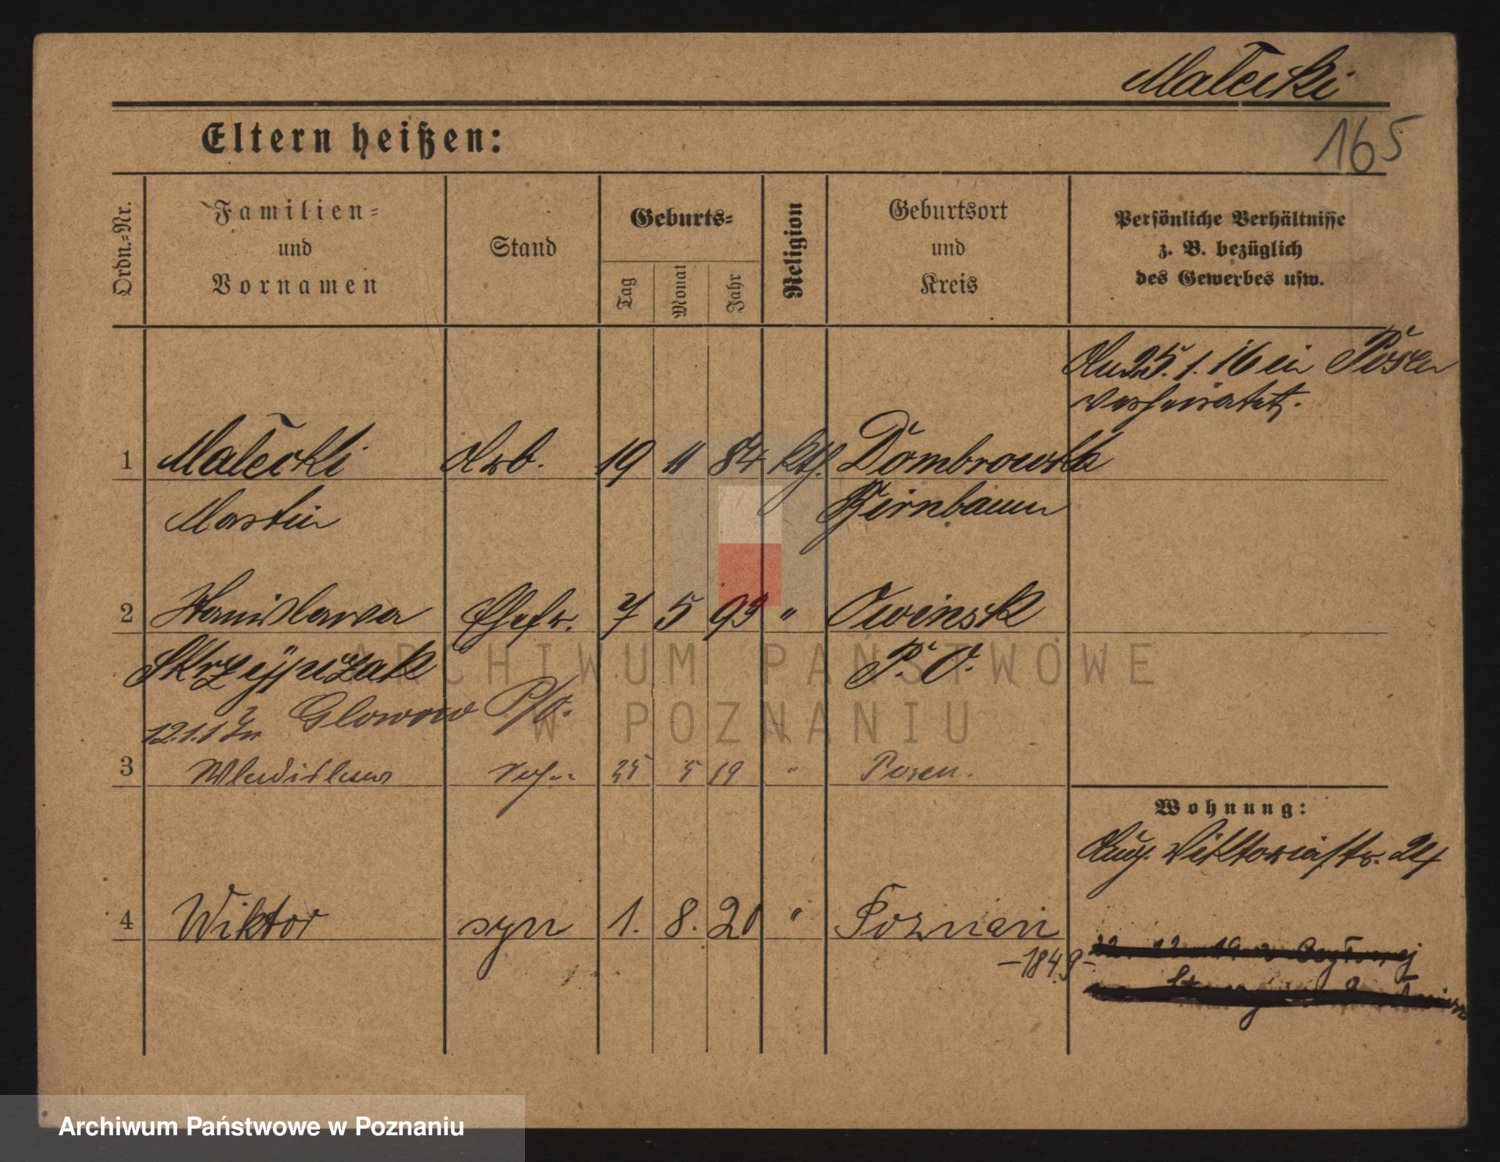 Małecki
165
Eltern heißen:
Ordn.-Nr.
Familien-
und
Vornamen
Stand
Geburts-
Tag
Monat
Jahr
Religion
Geburtsort
und
Kreis
Persönliche Verhältnisse
z. B. bezüglich
des Gewerbes usw.
Am 25.1.16 in Posen
verheiratet.
1 Małecki Arb. 19 11 84 kth. Dombrowka
Martin Birnbaum
2 Stanislawa Ehefr. 7 5 93 " Owinsk
Skrzypczak P. O.
12.1. Glowow P/O.
3 Wladislaus Sohn 25 5 19 " Posen.
Wohnung:
Aug. Viktoriastr. 24
4 Wiktor syn 1. 8. 20 " Poznań
-1849-
22. 12. 19
ARCHIWUM PAŃSTWOWE
W POZNANIU
Archiwum Państwowe w Poznaniu